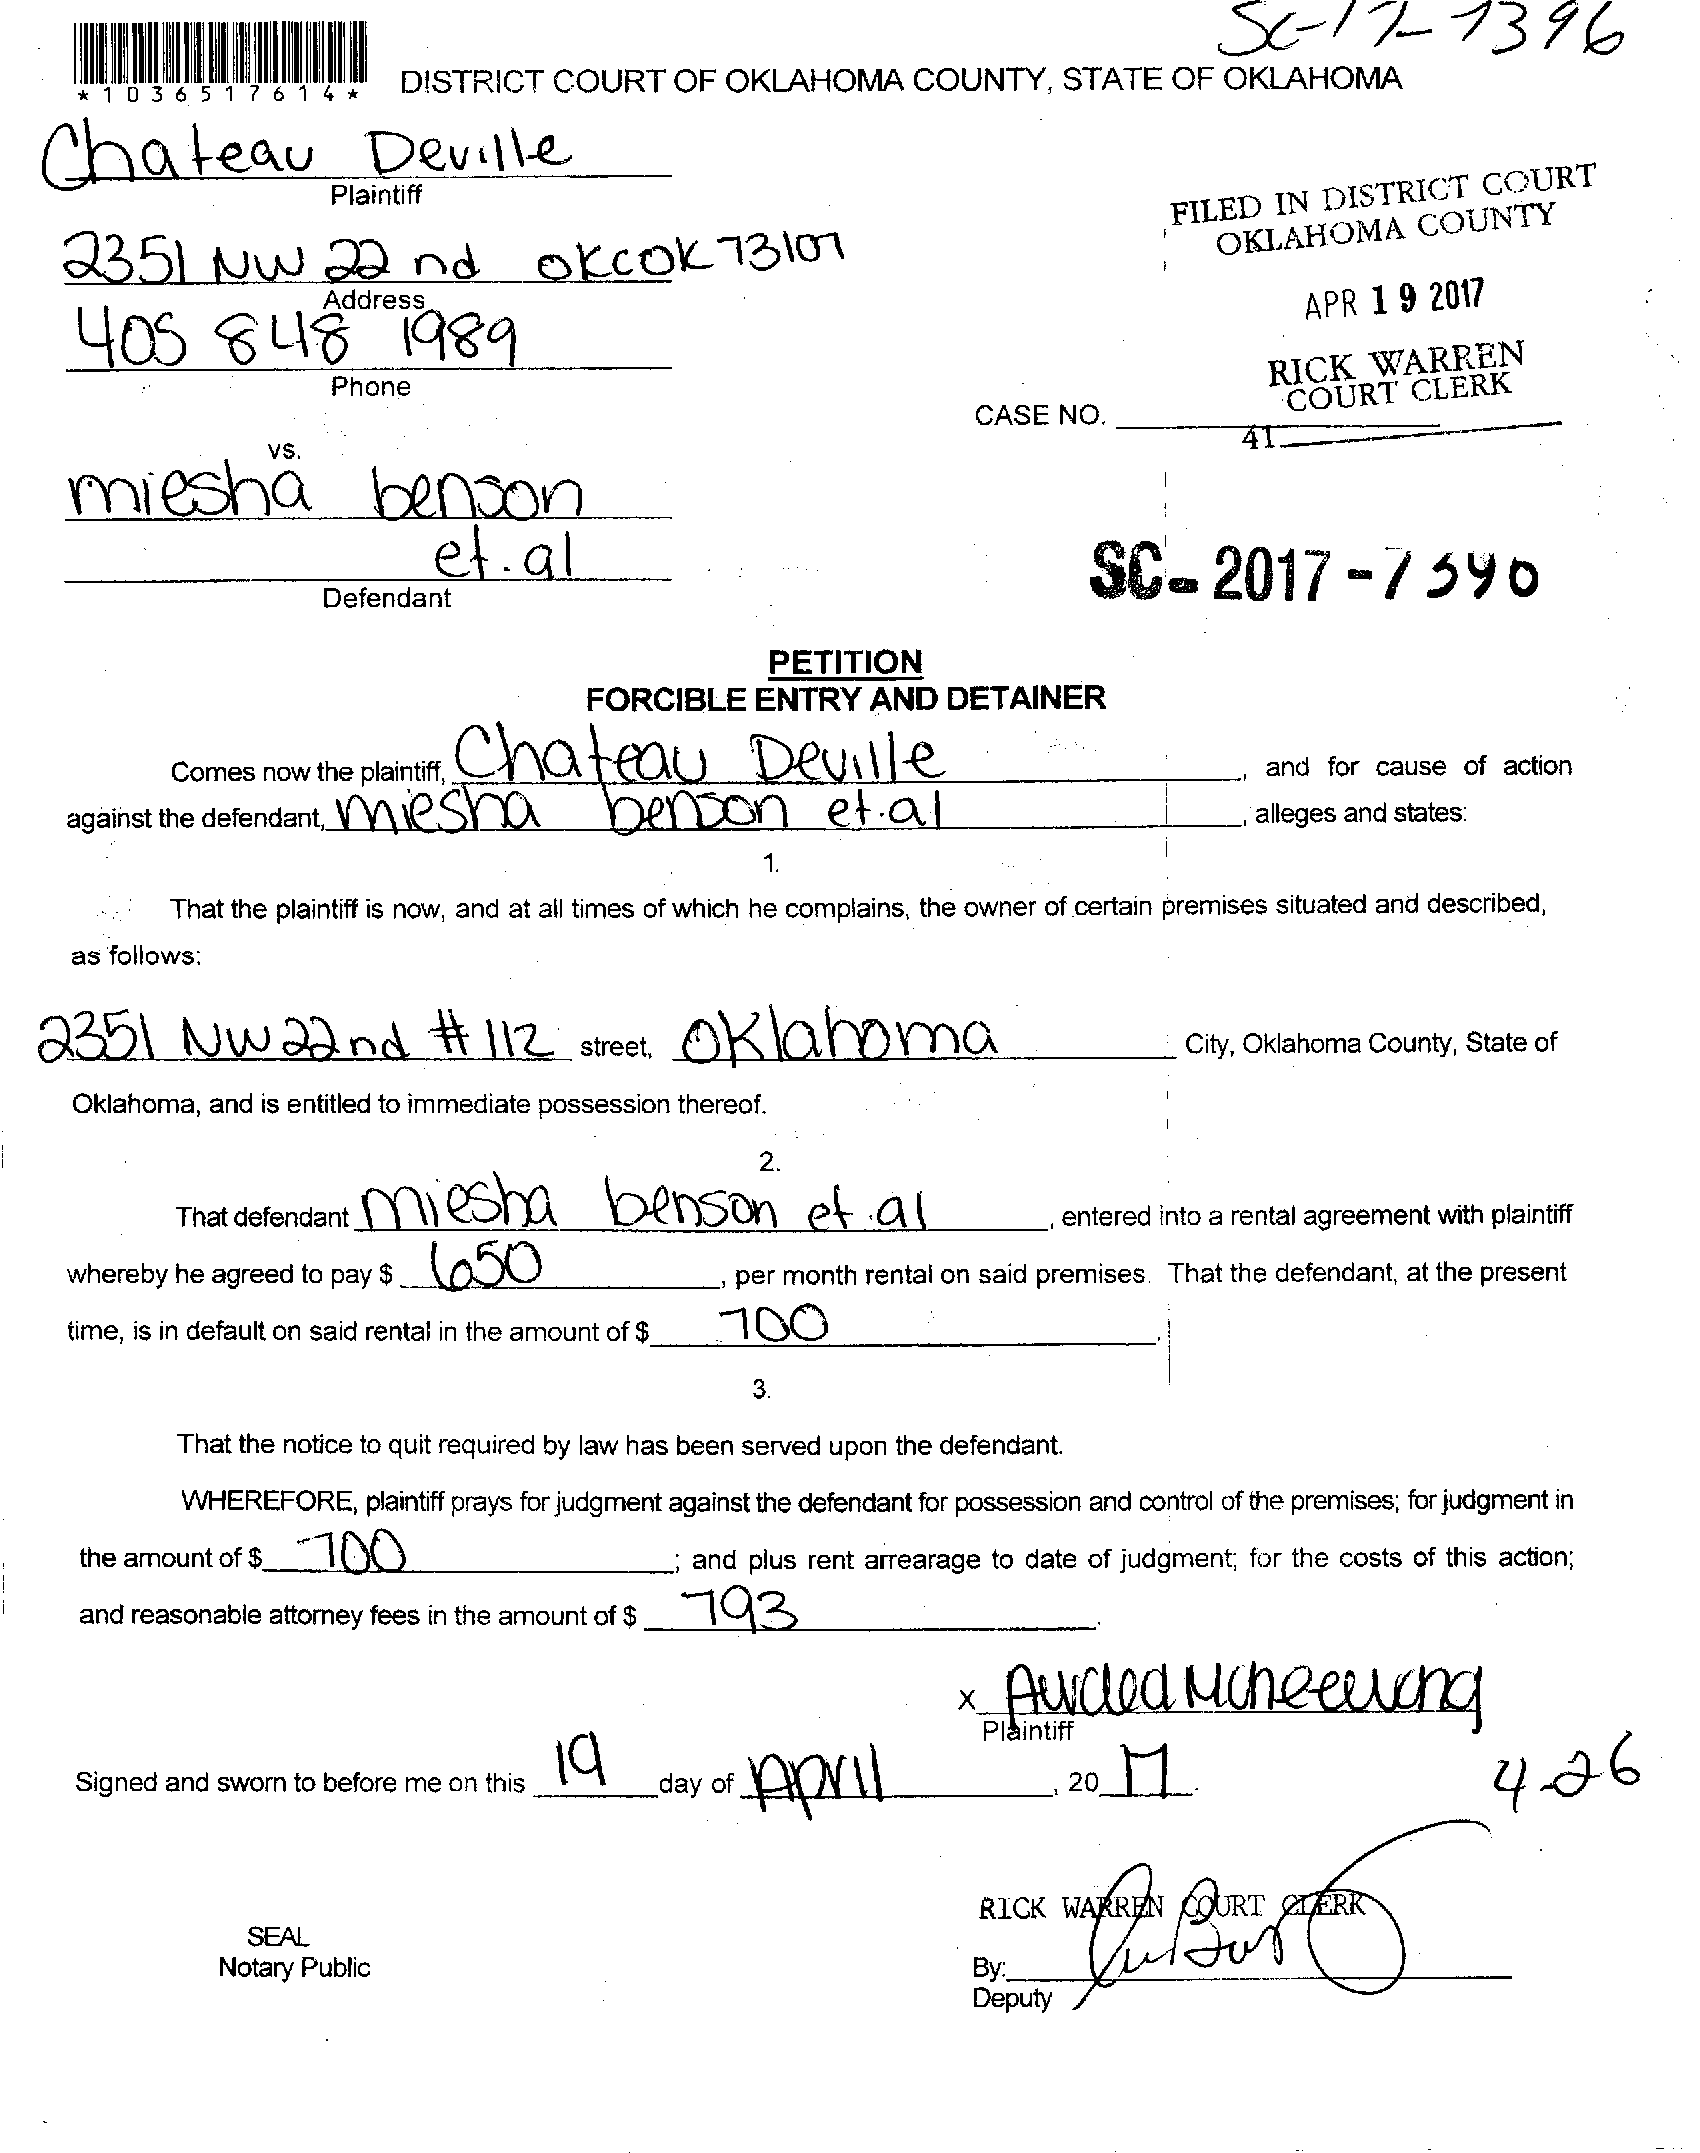 SC-17-7396
*1036517614*
DISTRICT COURT OF OKLAHOMA COUNTY, STATE OF OKLAHOMA
Chateau Deville
Plaintiff
FILED IN DISTRICT COURT
OKLAHOMA COUNTY
2351 NW 22nd OKC OK 73107
Address
APR 19 2017
405 848 1989
Phone
RICK WARREN
COURT CLERK
CASE NO.
41
vs.
miesha benson
et.al
Defendant
SC-2017-7390
PETITION
FORCIBLE ENTRY AND DETAINER
Comes now the plaintiff, Chateau Deville, and for cause of action
against the defendant, miesha benson et.al, alleges and states:
1.
That the plaintiff is now, and at all times of which he complains, the owner of certain premises situated and described,
as follows:
2351 NW 22nd #112 street, Oklahoma City, Oklahoma County, State of
Oklahoma, and is entitled to immediate possession thereof.
2.
That defendant miesha benson et.al, entered into a rental agreement with plaintiff
whereby he agreed to pay $ 650, per month rental on said premises. That the defendant, at the present
time, is in default on said rental in the amount of $ 700.
3.
That the notice to quit required by law has been served upon the defendant.
WHEREFORE, plaintiff prays for judgment against the defendant for possession and control of the premises; for judgment in
the amount of $ 700; and plus rent arrearage to date of judgment; for the costs of this action;
and reasonable attorney fees in the amount of $ 793.
x
Plaintiff
Signed and sworn to before me on this 19 day of April, 20 17.
4-26
RICK WARREN COURT CLERK
SEAL
Notary Public
By:
Deputy